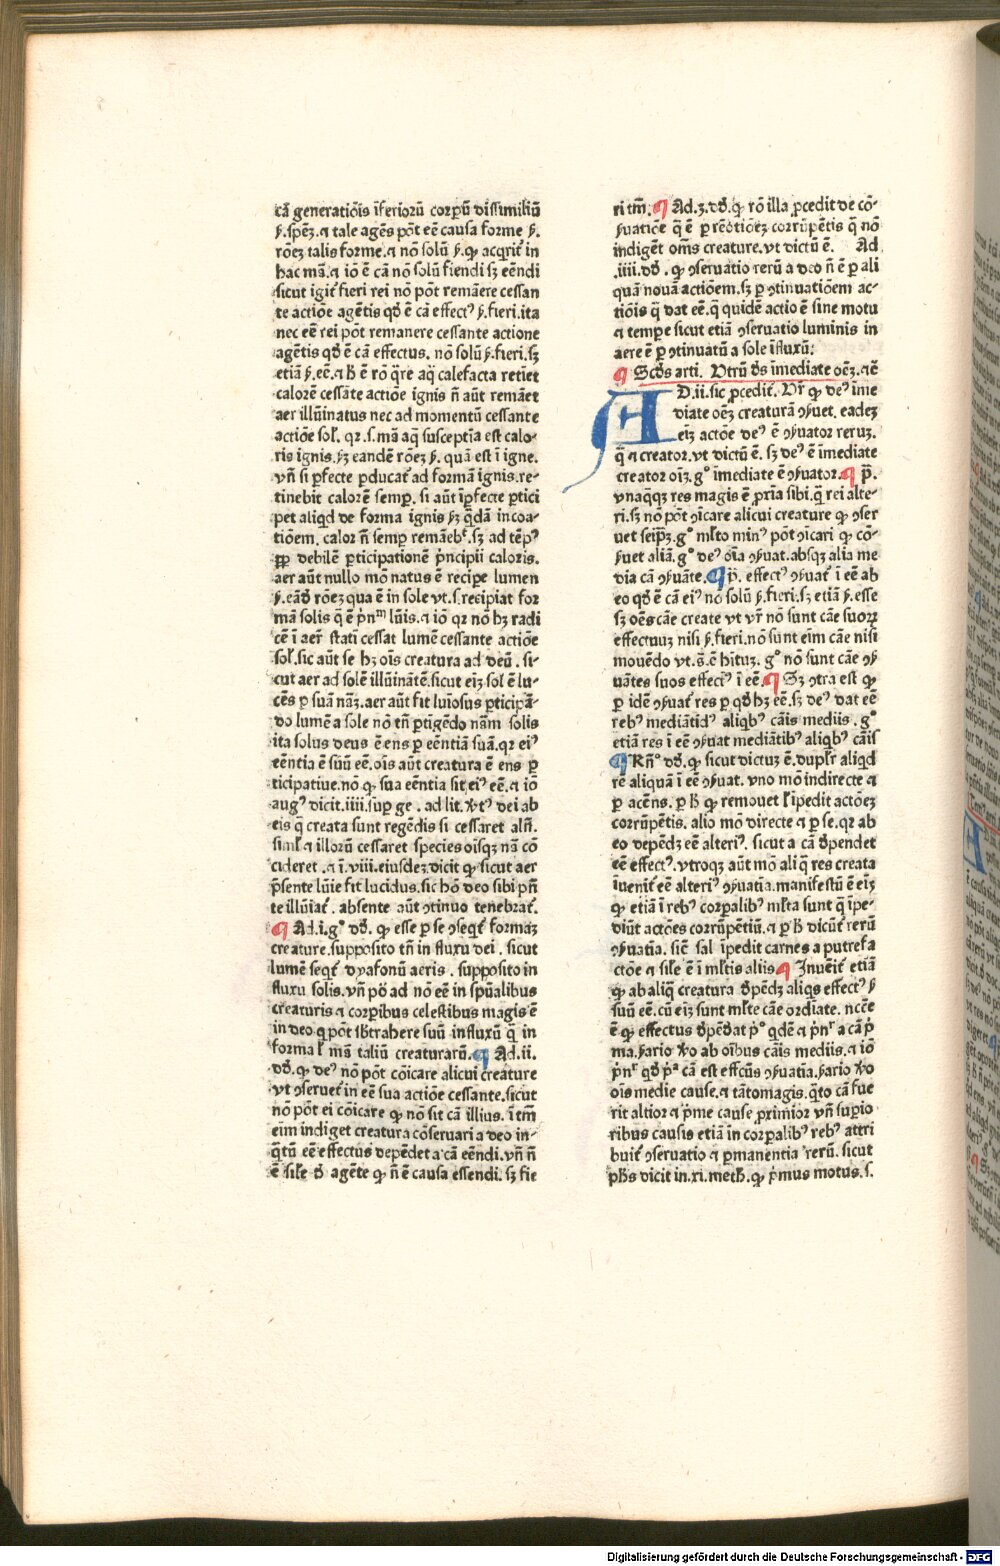 cā generatiōis īferiorū corpū dissimiliū
ẜ.spēꝫ.⁊ tale agēs pōt eē causa forme ẜ.
rōeꝫ talis forme.⁊ nō solū ẜ.ꝙ acqrit̄ in
hac mā.⁊ iō ē cā nō solū fiendi sꝫ eēndi
sicut igit̄ fieri rei nō pōt remāere cessan
te actiōe agētis qd̄ ē cā effectꝰ ẜ.fieri.ita
nec eē rei pōt remanere cessante actione
agētis qd̄ ē cā effectus. nō solū ẜ.fieri.sꝫ
etiā ẜ.eē.⁊ h̄ ē rō q̄re aq̄ calefacta retiet
calorē cessāte actiōe ignis n̄ aūt remāet
aer illūinatus nec ad momentū cessante
actiōe sol̄. qꝛ.s.mā aq̄ susceptīa est calo-
ris ignis.ẜꝫ eandē rōeꝫ ẜ. quā est ī igne.
vn̄ si ꝑfecte ꝓducat̄ ad formā ignis.re-
tinebit calorē semꝑ. si aūt īꝑfecte ꝑtici
pet aliqd de forma ignis ẜꝫ q̄dā incoa-
tiōem. calor n̄ semꝑ remāebt̄.sꝫ ad tēpꝰ
ꝓꝑ debilē ꝑticipationē pⁱncipii caloris.
aer aūt nullo mō natus ē recipe lumen
ẜ.eād̄ rōeꝫ qua ē in sole vt.s.recipiat for
mā solis q̄ ē pⁱnᵐ lūis.⁊ iō qꝛ nō hꝫ radi
cē ī aer̄ statī cessat lumē cessante actiōe
sol̄.sic aūt se hꝫ oīs creatura ad deū. si-
cut aer ad solē illūinātē.sicut eīꝫ sol ē lu-
cēs ꝑ suā nāꝫ.aer aūt fit luīosus ꝑticipā-
do lumē a sole nō tn̄ ꝑtigēdo nām solis
ita solus deus ē ens ꝑ eēntiā suā.qꝛ eiꝰ
eēntia ē suū eē.oīs aūt creatura ē ens ꝑ
ticipatiue.nō ꝙ sua eēntia sit eiꝰ eē.⁊ iō
augꝰ dicit.iiii.suꝑ ge. ad lit. v̄tꝰ dei ab
eis q̄ creata sunt regēdis si cessaret alīn̄.
siml̄ ⁊ illorū cessaret species oīsqꝫ nā cō
cideret. ⁊ ī. viii.eiusdeꝫ.dicit ꝙ sicut aer
pⁱsente lūīe fit lucidus.sic hō deo sibi pn̄
te illūīat̄. absente aūt ꝯtinuo tenebrat̄.
¶ Ad.i.gᵒ dd̄. ꝙ esse ꝑ se ꝯseqt̄ formaꝫ
creature.supposito tn̄ in fluxu dei. sicut
lumē seqt̄ dyafonū aeris. supposito in
fluxu solis.vn̄ pō ad nō eē in spūalibus
creaturis ⁊ corꝑibus celestibus magis ē
in deo.q̄ pōt sbtrahere suū influxū q̄ in
forma ł mā taliū creaturarū. ¶ Ad.ii.
dd̄.ꝙ deꝰ nō pōt cōicare alicui creature
vt ꝯseruet̄ in eē sua actiōe cessante.sicut
nō pōt ei cōicare ꝙ nō sit cā illius. ī tm̄
eim indiget creatura cōseruari a deo in-
q̄tū eē effectus depēdet a cā eēndi.vn̄ n̄
ē sile d̄ agēte ꝙ n̄ ē causa essendi. sꝫ fie
ri tm̄. ¶ Ad.3.dd̄.ꝙ rō illa ꝓcedit de cō-
ẜuatiōe q̄ ē ꝑ reēotioꝫ corrūpētis q̄ nō
indigēt oms creature.vt dictū ē. Ad
.iiii.dd̄. ꝙ ꝯseruatio rerū a deo n̄ ē ꝑ ali
quā nouā actiōem.sꝫ ꝑ ꝯtinuatiōem ac-
tiōis q̄ dat eē.q̄ quidē actio ē sine motu
⁊ tempe sicut etiā ꝯseruatio luminis in
aere ē ꝑ ꝯtinuatū a sole īfluxū.
¶ Scd̄s arti. Utrū ds̄ īmediate oēꝫ.⁊ē
AD.ii.sic ꝓcedit̄. Ur̄ ꝙ deꝰ īme
diate oēꝫ creaturā ꝯẜuet. eadeꝫ
eīꝫ actōe deꝰ ē ꝯẜuator reruꝫ.
q̄ ⁊ creator.vt dictū ē. sꝫ deꝰ ē īmediate
creator oīꝫ.gᵒ īmediate ē ꝯẜuator. ¶ p̄.
vnaq̄qꝫ res magis ē ꝓria sibi.q̄ rei alte-
ri.sꝫ nō pōt ꝯicare alicui creature ꝙ ꝯser
uet seipꝫ.gᵒ ml̄to minꝰ pōt ꝯicari ꝙ cō-
ẜuet aliā.gᵒ deꝰ oīa ꝯẜuat.absqꝫ alia me
dia cā ꝯẜuāte. ¶ p̄. effectꝰ ꝯẜuat̄ ī eē ab
eo qd̄ ē cā eiꝰ nō solū ẜ.fieri.sꝫ etiā ẜ.esse
sꝫ oēs cāe create vt vr̄ nō sunt cāe suoꝝ
effectuuꝫ nisi ẜ.fieri.nō sunt eim cāe nisi
mouēdo vt.s̄.ē hītuꝫ. gᵒ nō sunt cāe ꝯẜ
uātes suos effectꝰ ī eē. ¶ Sꝫ ꝯtra est ꝙ
ꝑ idē ꝯẜuat̄ res ꝑ qd̄ hꝫ eē.sꝫ deꝰ dat eē
rebꝰ mediātidꝰ aliqbꝰ cāis mediis. gᵒ
etiā res ī eē ꝯẜuat mediātibꝰ aliqbꝰ cāis
¶ Rn̄ᵒ dd̄.ꝙ sicut dictuꝫ ē.dupłr aliqd
re aliquā ī eē ꝯẜuat. vno mō indirecte ⁊
ꝑ acēns. ꝑ h̄ ꝙ remouet ł īpedit actōeꝫ
corrūpētis. alio mō directe ⁊ ꝑ se.qꝛ ab
eo depēdꝫ eē alteriꝰ. sicut a cā d̄pendet
eē effectꝰ. vtroqꝫ aūt mō aliq̄ res creata
īuenit̄ eē alteriꝰ ꝯẜuatīa.manifestū ē eīꝫ
ꝙ etiā ī rebꝰ corꝑalibꝰ ml̄ta sunt q̄ īpe-
diūt actōes corrūpētiū.⁊ ꝑ h̄ dicūt̄ rerū
ꝯẜuatīa. sicē sal īpedit carnes a putrefa
ctōe ⁊ sile ē ī ml̄tis aliis ¶ Inuēit̄ etiā
ꝙ ab aliq̄ creatura d̄pēdꝫ aliqs effectꝰ ẜ
suū eē.cū eīꝫ sunt ml̄te cāe ordīate. ncēē
ē ꝙ effectus d̄pēdat pⁱᵒ qdē ⁊ pⁱnr̄ a cā pⁱ
ma.ẜario v̄o ab oībus cāis mediis.⁊ iō
pⁱnr̄ qd̄ pⁱᵃ cā est effcūs ꝯẜuatīa.ẜario v̄o
oīs medie cause.⁊ tātomagis.q̄to cā fue
rit altior ⁊ pⁱme cause ꝓximior vn̄ suꝑio
ribus causis etiā in corꝑalibꝰ rebꝰ attri
buit̄ ꝯseruatio ⁊ ꝑmanentia rerū. sicut
ph̄s dicit in.xi.meth̄.ꝙ pⁱmus motus.s.
Digitalisierung gefördert durch die Deutsche Forschungsgemeinschaft - DFG